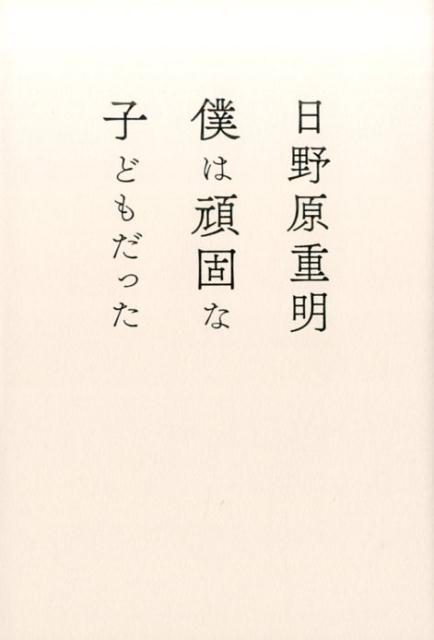 日野原重明
僕は頑固な
子どもだった